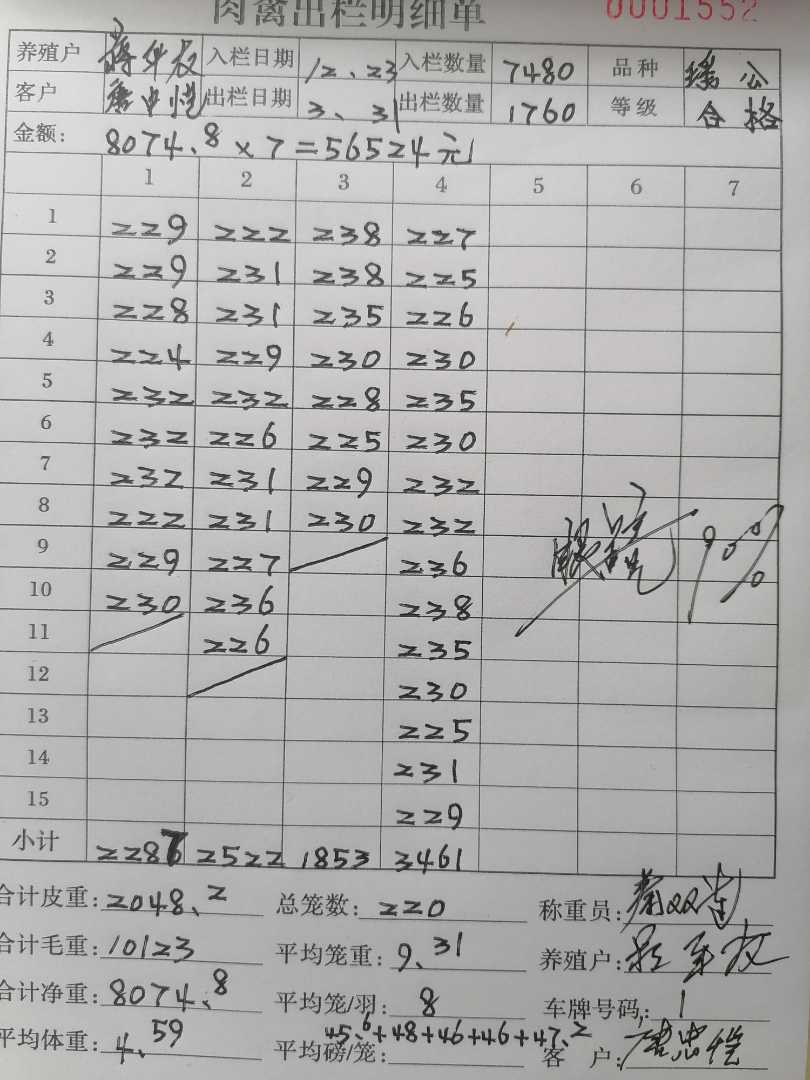 肉禽出栏明细单 0001552
养殖户 入栏日期 12、23 入栏数量 7480 品种 瑤公
客户 出栏日期 3、31 出栏数量 1760 等级 合格
金额: 8074.8×7=56524元
1 2 3 4 5 6 7
1 229 222 238 227
2 229 231 238 225
3 228 231 235 226
4 224 229 230 230
5 232 232 228 235
6 232 226 225 230
7 232 231 229 232
8 222 231 230 232
9 229 227 236
10 230 236 238
11 226 235
12 230
13 225
14 231
15 229
小计 2287 2522 1853 3461
合计皮重: 2048、2 总笼数: 220 称重员:
合计毛重: 10123 平均笼重: 9、31 养殖户:
合计净重: 8074、8 平均笼/羽: 8 车牌号码: 1
平均体重: 4、59 平均磅/笼: 45.6+48+46+46+47.2 客 户: